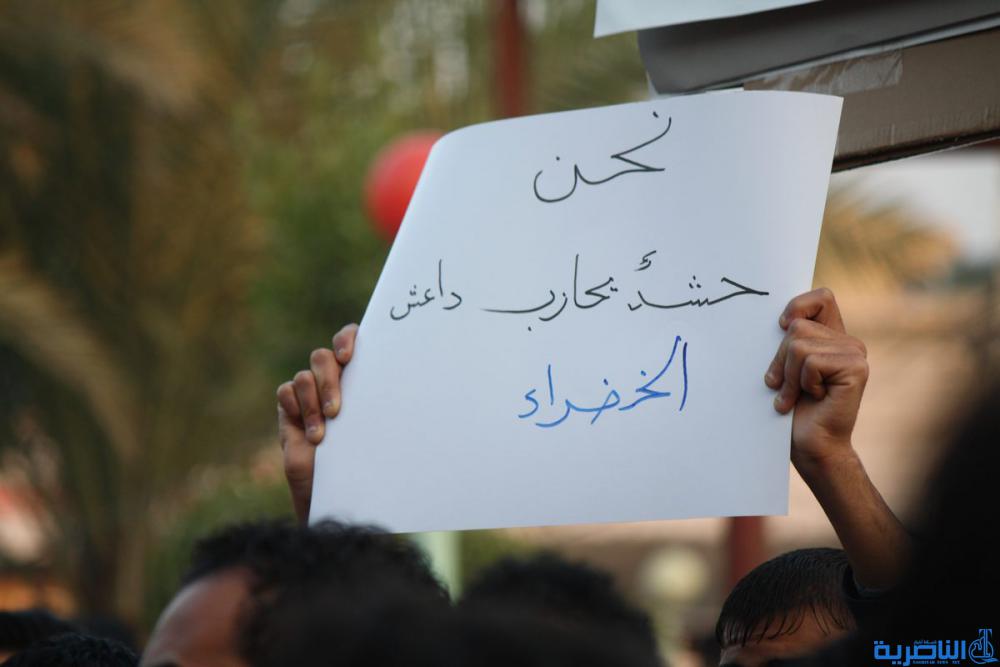 نحن
حشدٌ يحارب داعش
الخضراء
الناصرية